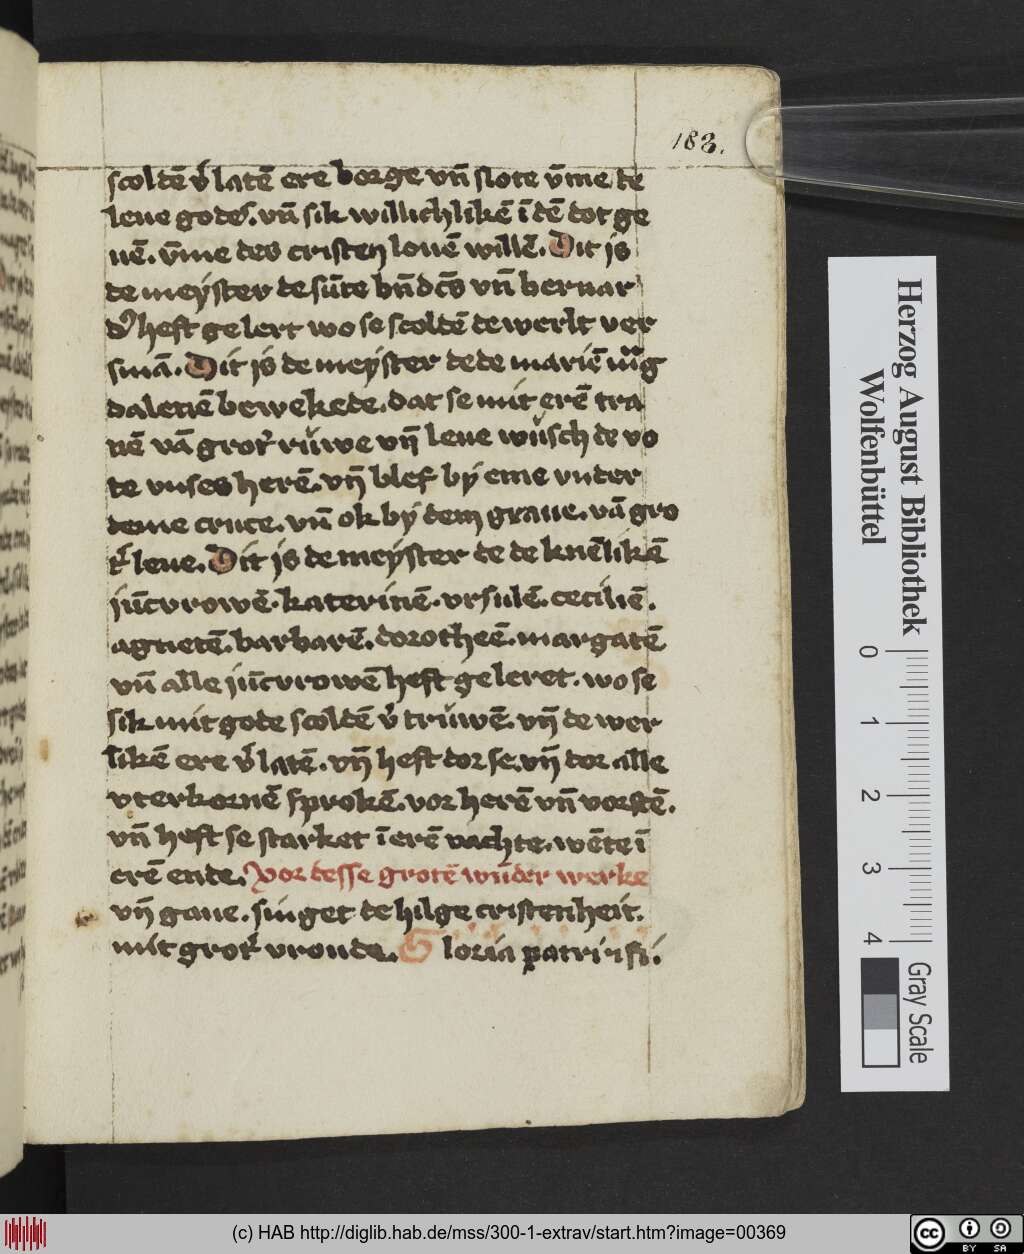 183.
scoldē v̓ latē ere borge vn̄ slote v̄me de
leue godes. vn̄ sik willichlikē ī dē dot ge
uē. v̄me des cristen louē willē. Dit is
de meyster de sūte bn̄dc̄s vn̄ bernar
d᷑ heft gelert wo se scoldē de werlt ver
smā. Dit is de meyster de de mariē
dalenē bewekede. dat se mit erē tra
nē vā grot᷑ rǔwe vn̄ leue wǔsch de vo
te vnses herē. vn̄ blef by eme vnder
deme cruce. vn̄ ok by dem graue. vā gro
t᷑ leue. Dit is de meyster de de knēlikē
jūcvrowē. katerinē. vrsulē. ceciliē.
agnetē. barbarē. dorotheē. margatē
vn̄ alle jūcvrowē heft geleret. wo se
sik mit gode scoldē v̓ trǔwē. vn̄ de wer
likē ere v̓ latē. vn̄ heft dor se. vn̄ dor alle
vterkornē sprokē. vor herē vn̄ vorstē.
vn̄ heft se starket ī erē vachte. wēte ī
erē ende. Vor desse grotē wūder werke
vn̄ gaue. singet de hilge cristenheit.
mit grot᷑ vronde. Gloria patri ⁊ fi.
Herzog August Bibliothek
Wolfenbüttel
0 1 2 3 4
Gray Scale
(c) HAB http://diglib.hab.de/mss/300-1-extrav/start.htm?image=00369
cc BY SA